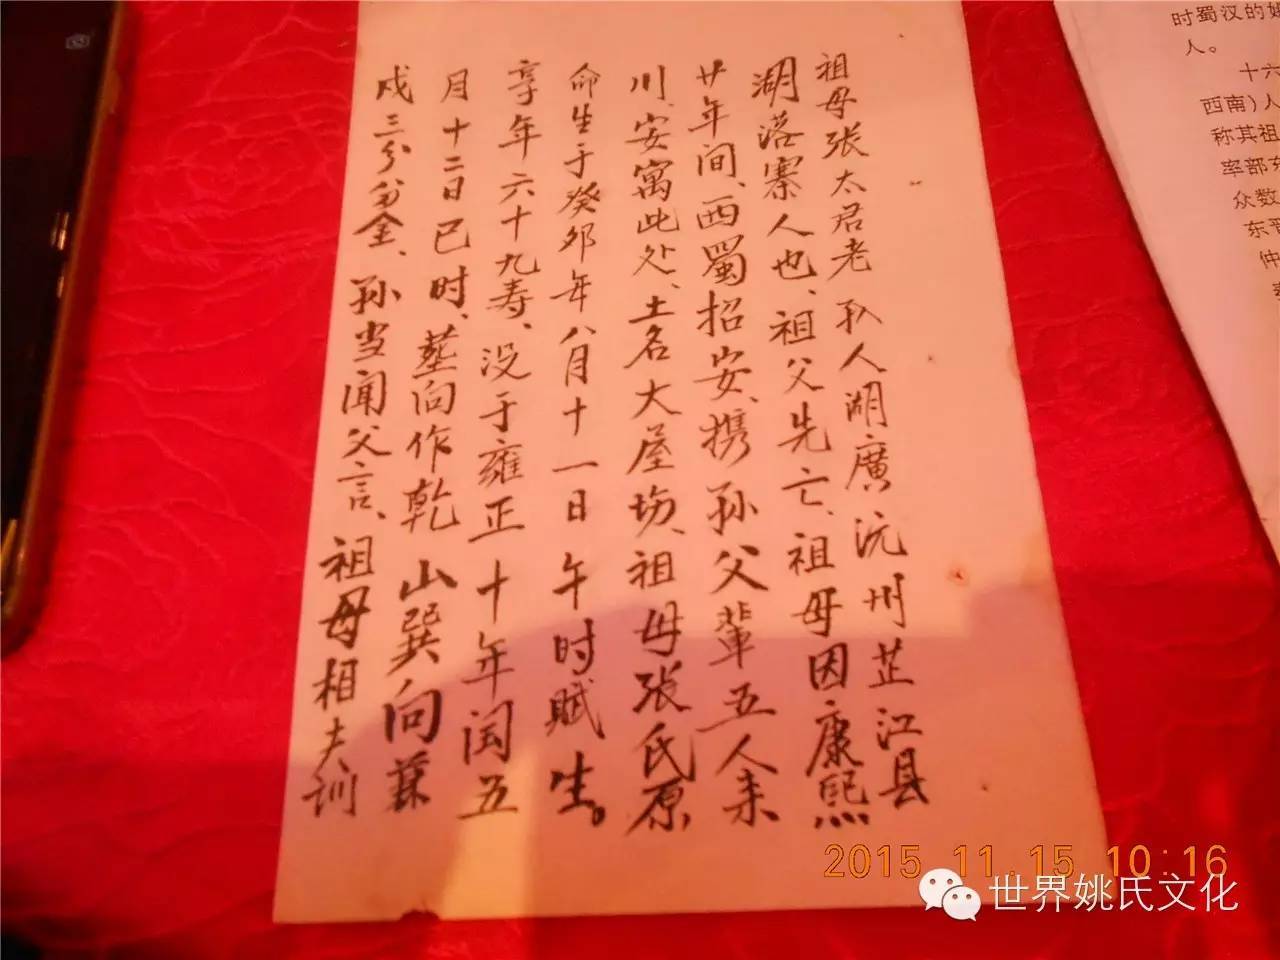 祖母张太君老孺人湖廣沅州芷江县
湖落寨人也、祖父先亡、祖母因康熙
廿年间、西蜀招安、携孙父輩五人来
川、安寓此处、土名大屋坊、祖母张氏原
命生于癸卯年八月十一日午时赋生。
享年六十九寿、没于雍正十年闰五
月十二日巳时、塟向作乾山巽向兼
戌三分分金、孙当闻父言、祖母相夫训
时蜀汉的
人。
十六
西南)人
称其祖
率部东
众数
东晋
仲
2015 11.15 10:16
世界姚氏文化